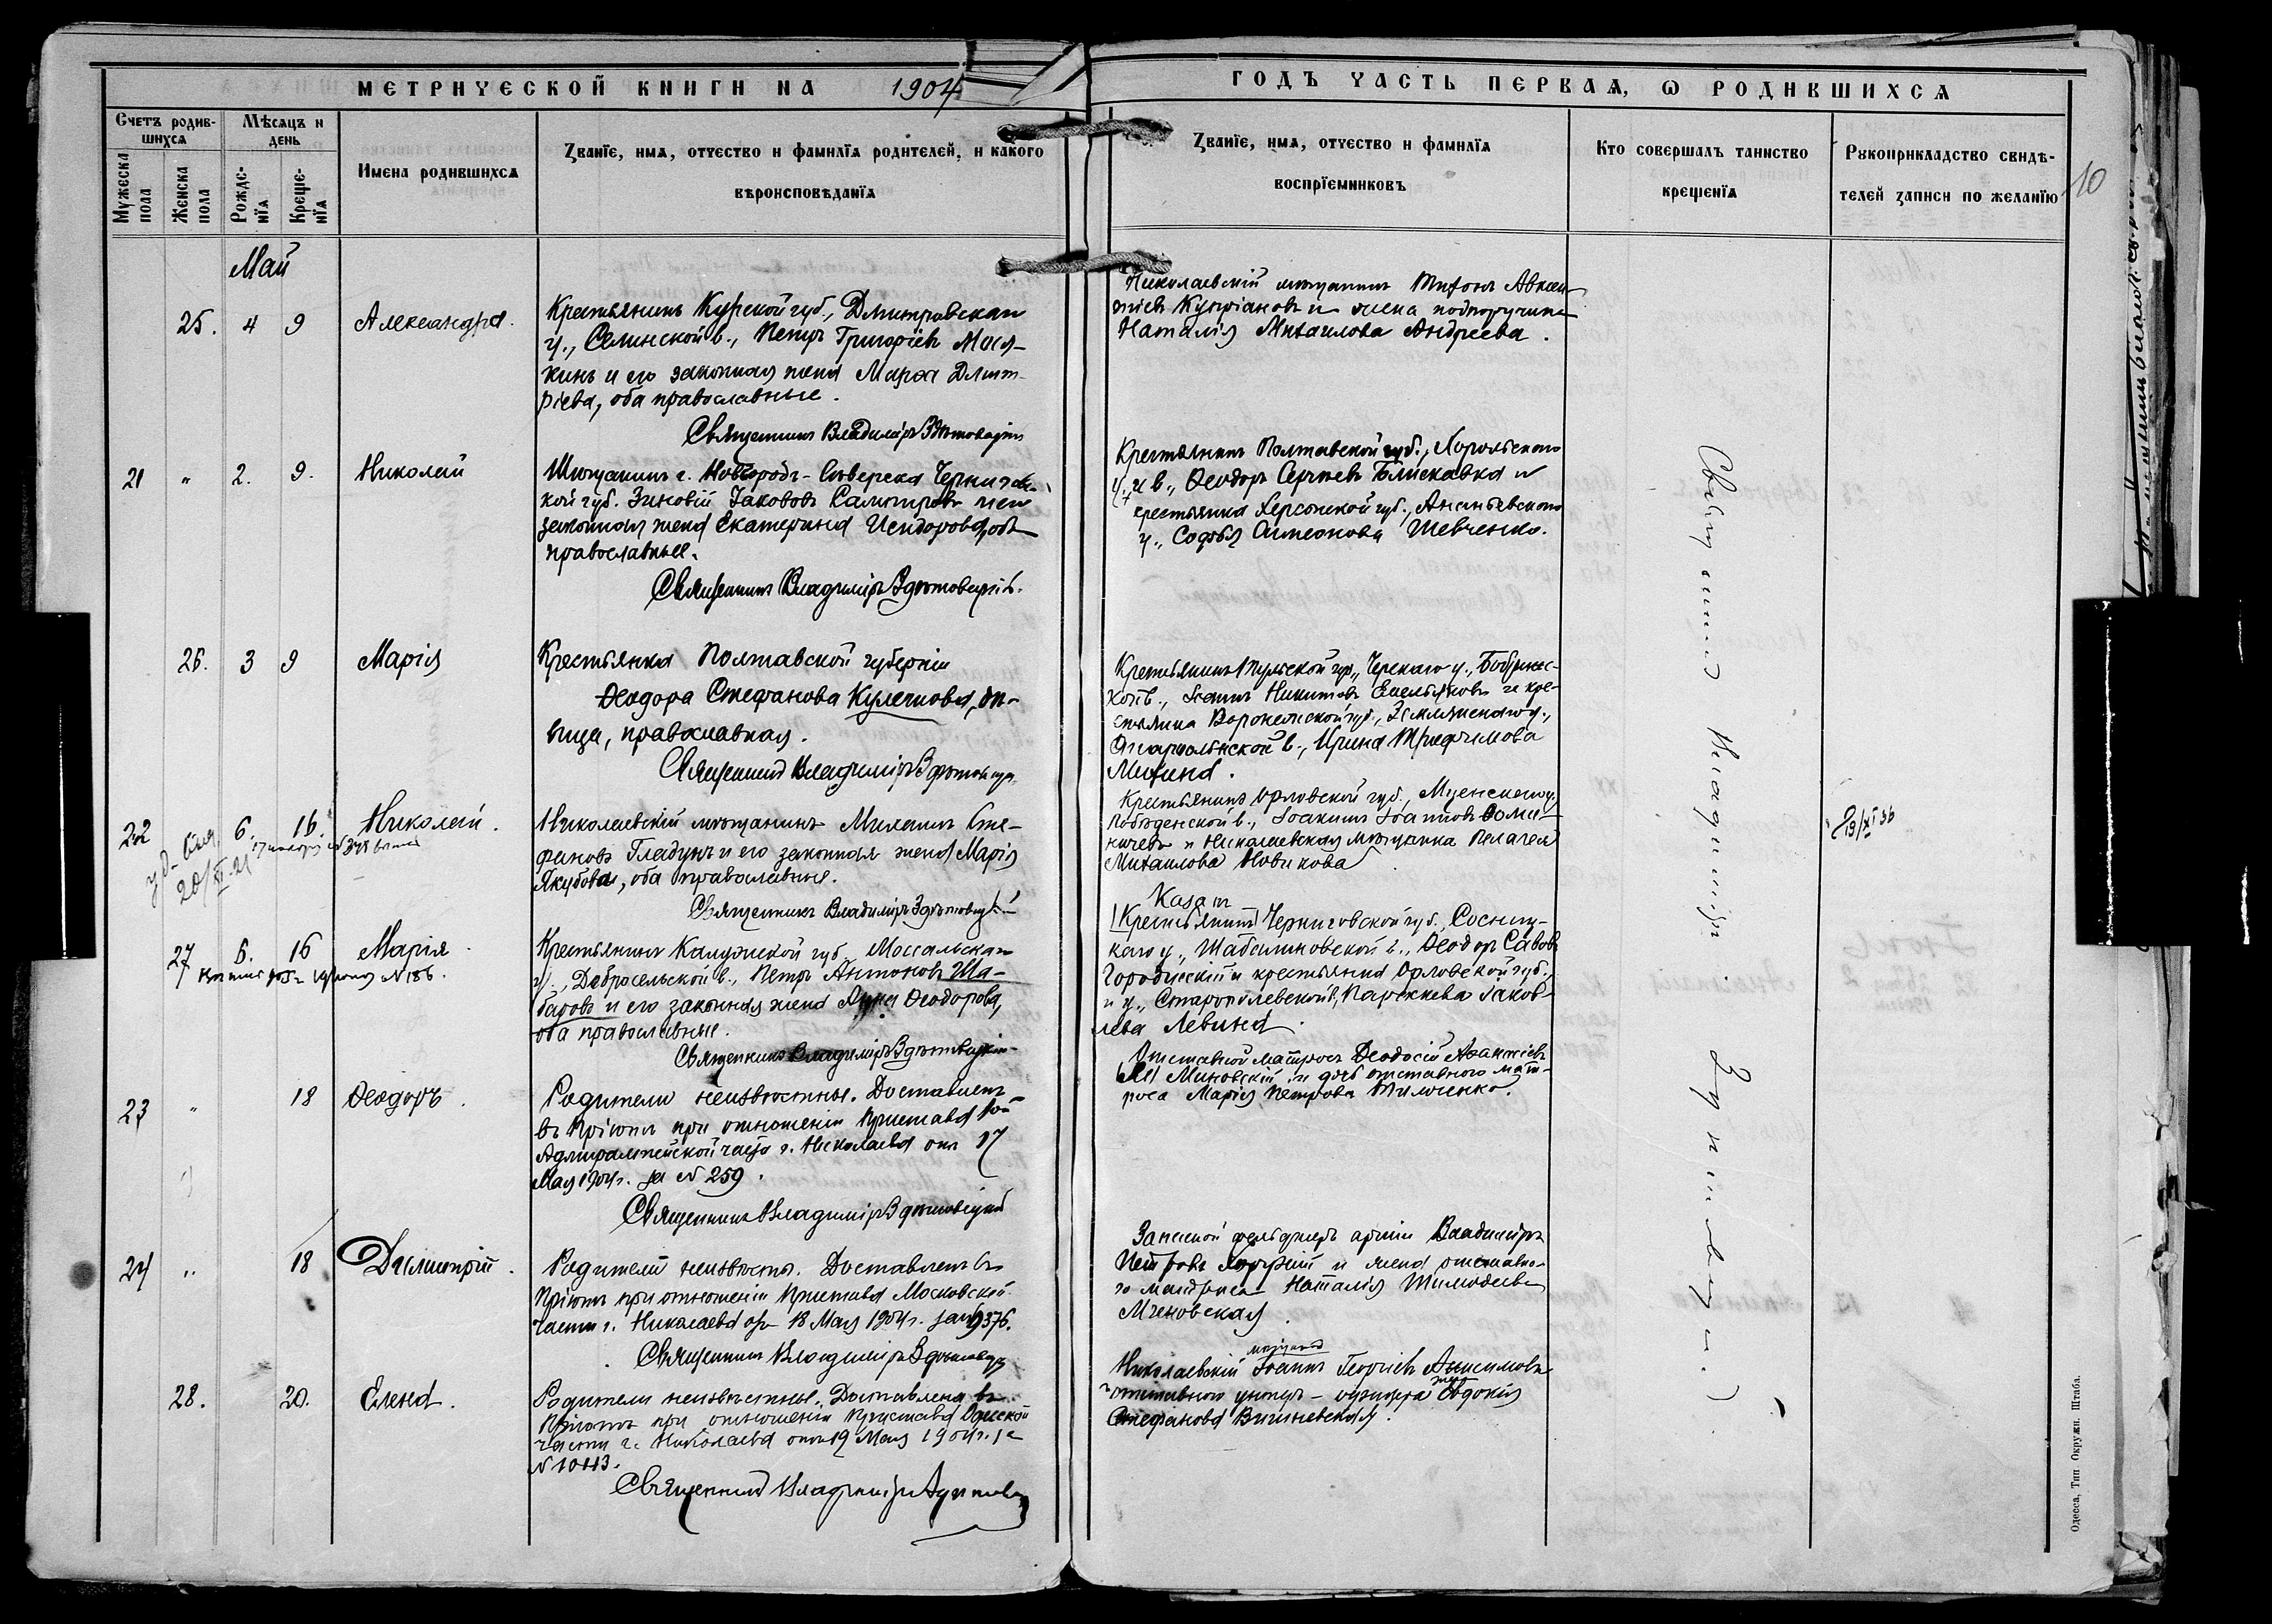 МЕТРИЧЕСКОЙ КНИГИ НА 1904
ГОДЪ ЧАСТЬ ПЕРВАЯ, Ѡ РОДИВШИХСЯ
10
Счетъ родив-
шихся
Мѣсяцъ и
день
Мужеска
пола
Женска
пола
Рожде-
нїя
Креще-
нїя
Имена родившихся
Званїе, имя, отчество и фамилїя родителей, и какого
вѣроисповѣданїя
Званїе, имя, отчество и фамилїя
воспрїемниковъ
Кто совершалъ таинство
крещенїя
Рукоприкладство свидѣ-
телей записи по желанїю
Май
25. 4 9 Александра.
Крестьянинъ Курской губ., Дмитровскаго
у., Селинской в., Петръ Григоріевъ Мася-
кинъ и его законная жена Марѳа Дмит-
ріева, оба православные.
Священникъ Владиміръ
Николаевскій мѣщанинъ Тихонъ Авксен-
тіевъ Купріановъ и жена подпоручика
Наталія Михаилова Андреева.
21 " 2. 9. Николай
Мѣщанинъ г. Новгородъ-Сѣверска Чернигов-
кой губ. Зиновій Іакововъ и его
законная жена Екатерина Исидорова, оба
православные.
Священникъ Владиміръ
Крестьянинъ Полтавской губ., Хорольскаго
у. и в., Ѳеодоръ Сергѣевъ Блискавка и
крестьянка Херсонской губ., Ананьевскаго
у., Софья Симеонова Шевченко.
26. 3 9 Марія
Крестьянка Полтавской губерніи
Ѳеодора Стефанова Кулешова, дѣ-
вица, православная.
Священникъ Владиміръ
Крестьянинъ Тульской губ., у.,
кой в., Іоаннъ Никитовъ Емельяновъ и кре-
стьянка Воронежской губ., Землянскаго у.,
в., Ирина Трифимова
Митина.
22 6. 16. Николай.
20/XI-21
Николаевскій мѣщанинъ Михаилъ Сте-
фановъ Гладунъ и его законная жена Марія
Якубова, оба православные.
Священникъ Владиміръ
Крестьянинъ Орловской губ., Мценскаго у.
в., Іоакимъ Іоанновъ
и Николаевская мѣщанка Пелагея
Михаилова Новикова
19/XI 36
27 6. 16 Марія.
N 186.
Крестьянинъ Калужской губ., Мосальскаго
у., Добросельской в., Петръ Антоновъ Ша-
баровъ и его законная жена Анна Ѳеодорова,
оба православные.
Священникъ Владиміръ
Казакъ
Крестьянинъ Черниговской губ., Сосниц-
каго у., Шабалиновской в., Ѳеодоръ Савовъ
Городисскій и крестьянка Орловской губ.
и у., в., Параскева Іаков-
лева Левина.
23 " 18 Ѳеодоръ.
Родители неизвѣстны. Доставленъ
въ Пріютъ при отношеніи Пристава 1ой
Адмиралтейской части г. Николаева отъ 17
Мая 1904 г. за N 259.
Священникъ Владиміръ
Отставной матросъ Ѳеодосій Аѳанасіевъ
Миновскій и дочь отставного мат-
роса Марія Петрова Тимченко.
24 " 18 Димитрій.
Родители неизвѣстны. Доставленъ въ
Пріютъ при отношеніи Пристава Московской
части г. Николаева отъ 18 Мая 1904 г. за N 9376.
Священникъ Владиміръ
Запасной фельдшеръ арміи Владиміръ
Петровъ и жена отставно-
го матроса Наталія Тимоѳеева
28. 20. Елена.
Родители неизвѣстны. Доставлена въ
Пріютъ при отношеніи Пристава Одесской
части г. Николаева отъ 19 Мая 1904 г. за
N 10113.
Священникъ Владиміръ
мѣщанинъ
Николаевскій Іоаннъ Георгіевъ Анисимовъ
отставного унтеръ-офицера жена Евдокія
Стефанова Вишневская.
Священникъ Владиміръ
Одесса, Тип Окружн. Штаба.